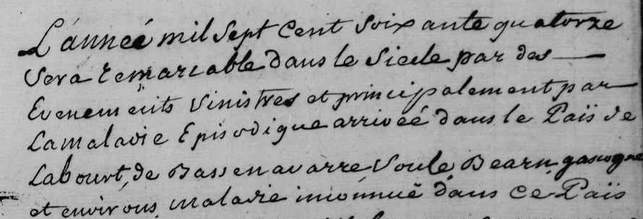 L'anneé mil sept Cent soixante quatorze
sera remarcable dans le siecle par des
Evenements sinistres et principalement par
La maladie Episodique arriveé dans le Païs de
Labourt, de Bassenavarre Soule Bearn gascogne
et environs, maladie inconnuë dans ce Païs